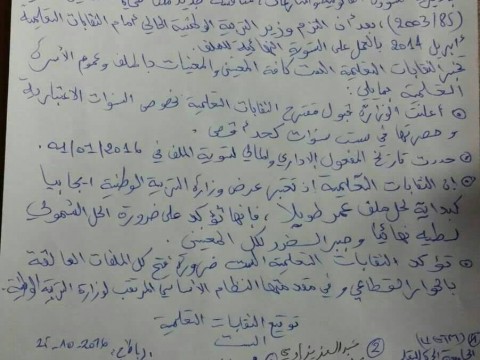 (2003/85)، بعد أن التزم وزير التربية الوطنية الحالي أمام النقابات التعليمية
أبريل 2014 بالعمل على التسوية النهائية للملف.
تخبر النقابات التعليمية الست كافة المعنيين والمعنيات بالملف وعموم الأسرة
التعليمية بما يلي:
أعلنت الوزارة قبول مقترح النقابات التعليمية بخصوص السنوات الاعتبارية
وحصرتها في ست سنوات كحد أقصى.
حددت تاريخ المفعول الإداري والمالي لتسوية الملف في 01/01/2016.
إن النقابات التعليمية إذ تعتبر عرض وزارة التربية الوطنية إيجابيا
كبداية لحل ملف عمر طويلا، فإنها تؤكد على ضرورة الحل الشمولي
لطيه نهائيا وجبر الضرر لكل المعنيين.
تؤكد النقابات التعليمية الست ضرورة فتح كل الملفات العالقة
بالحوار القطاعي وفي مقدمتها النظام الأساسي المرتقب لوزارة التربية الوطنية.
توقيع النقابات التعليمية
الست
الرباط: 25-10-2016
②